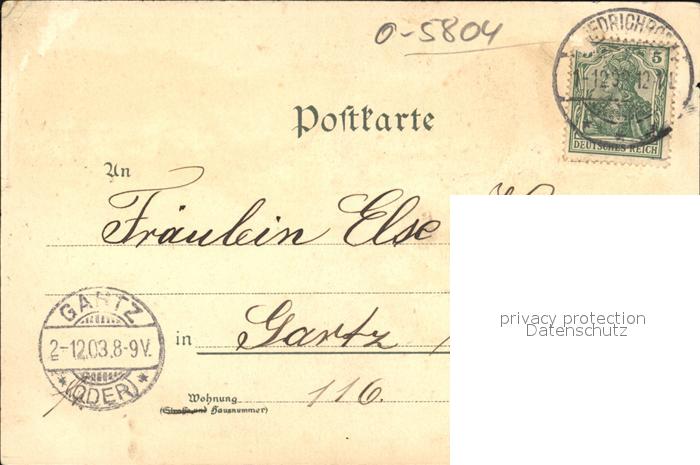 0-5804
5
DEUTSCHES REICH
Postkarte
An
Fräulein Else
GARTZ
2-12.03.8-9V.
(ODER)
in Gartz
116.
Wohnung
(Straße und Hausnummer)
privacy protection
Datenschutz